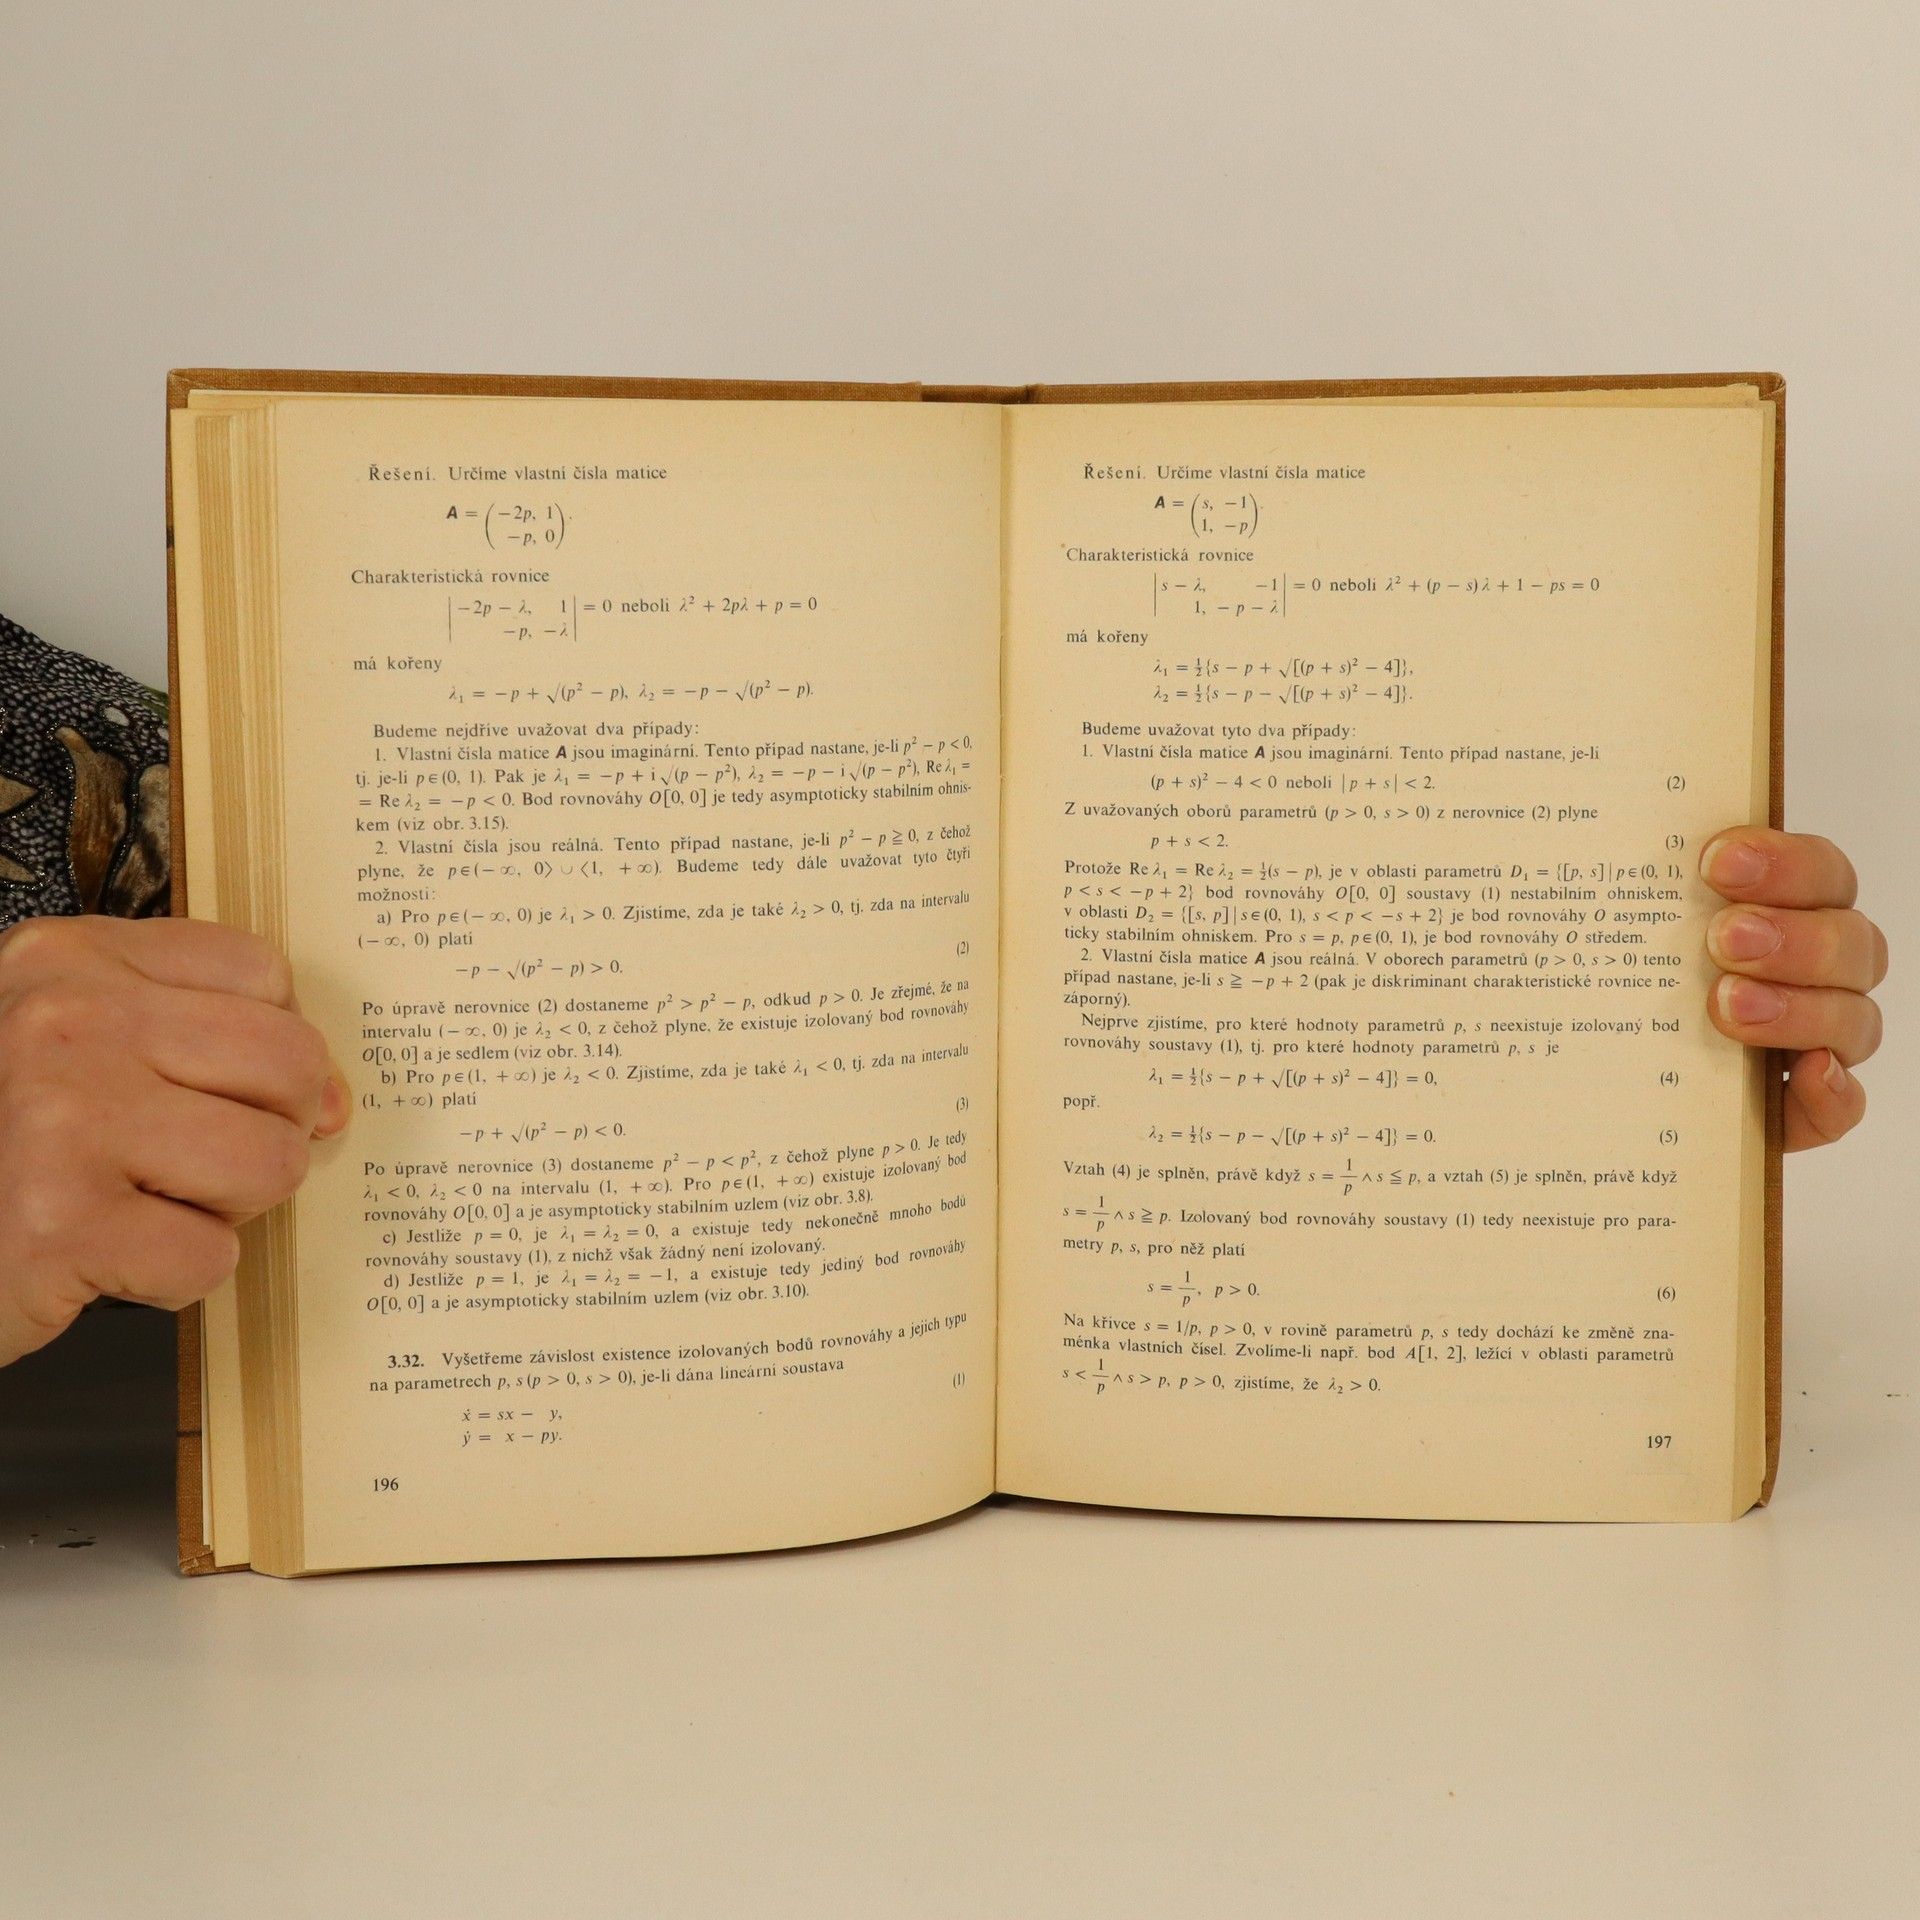 Řešení. Určíme vlastní čísla matice
A = (−2p, 1
−p, 0).
Charakteristická rovnice
|−2p − λ, 1
−p, −λ| = 0 neboli λ² + 2pλ + p = 0
má kořeny
λ₁ = −p + √(p² − p), λ₂ = −p − √(p² − p).
Budeme nejdříve uvažovat dva případy:
1. Vlastní čísla matice A jsou imaginární. Tento případ nastane, je-li p² − p < 0,
tj. je-li p∈(0, 1). Pak je λ₁ = −p + i√(p − p²), λ₂ = −p − i√(p − p²), Re λ₁ =
= Re λ₂ = −p < 0. Bod rovnováhy O[0, 0] je tedy asymptoticky stabilním ohnis-
kem (viz obr. 3.15).
2. Vlastní čísla jsou reálná. Tento případ nastane, je-li p² − p ≧ 0, z čehož
plyne, že p∈(−∞, 0⟩ ∪ ⟨1, +∞). Budeme tedy dále uvažovat tyto čtyři
možnosti:
a) Pro p∈(−∞, 0) je λ₁ > 0. Zjistíme, zda je také λ₂ > 0, tj. zda na intervalu
(−∞, 0) platí
−p − √(p² − p) > 0. (2)
Po úpravě nerovnice (2) dostaneme p² > p² − p, odkud p > 0. Je zřejmé, že na
intervalu (−∞, 0) je λ₂ < 0, z čehož plyne, že existuje izolovaný bod rovnováhy
O[0, 0] a je sedlem (viz obr. 3.14).
b) Pro p∈(1, +∞) je λ₂ < 0. Zjistíme, zda je také λ₁ < 0, tj. zda na intervalu
(1, +∞) platí
−p + √(p² − p) < 0. (3)
Po úpravě nerovnice (3) dostaneme p² − p < p², z čehož plyne p > 0. Je tedy
λ₁ < 0, λ₂ < 0 na intervalu (1, +∞). Pro p∈(1, +∞) existuje izolovaný bod
rovnováhy O[0, 0] a je asymptoticky stabilním uzlem (viz obr. 3.8).
c) Jestliže p = 0, je λ₁ = λ₂ = 0, a existuje tedy nekonečně mnoho bodů
rovnováhy soustavy (1), z nichž však žádný není izolovaný.
d) Jestliže p = 1, je λ₁ = λ₂ = −1, a existuje tedy jediný bod rovnováhy
O[0, 0] a je asymptoticky stabilním uzlem (viz obr. 3.10).
3.32. Vyšetřeme závislost existence izolovaných bodů rovnováhy a jejich typu
na parametrech p, s (p > 0, s > 0), je-li dána lineární soustava
ẋ = sx − y, (1)
ẏ = x − py.
196
Řešení. Určíme vlastní čísla matice
A = (s, −1
1, −p).
Charakteristická rovnice
|s − λ, −1
1, −p − λ| = 0 neboli λ² + (p − s)λ + 1 − ps = 0
má kořeny
λ₁ = ½{s − p + √[(p + s)² − 4]},
λ₂ = ½{s − p − √[(p + s)² − 4]}.
Budeme uvažovat tyto dva případy:
1. Vlastní čísla matice A jsou imaginární. Tento případ nastane, je-li
(p + s)² − 4 < 0 neboli |p + s| < 2. (2)
Z uvažovaných oborů parametrů (p > 0, s > 0) z nerovnice (2) plyne
p + s < 2. (3)
Protože Re λ₁ = Re λ₂ = ½(s − p), je v oblasti parametrů D₁ = {[p, s] | p∈(0, 1),
p < s < −p + 2} bod rovnováhy O[0, 0] soustavy (1) nestabilním ohniskem,
v oblasti D₂ = {[s, p] | s∈(0, 1), s < p < −s + 2} je bod rovnováhy O asympto-
ticky stabilním ohniskem. Pro s = p, p∈(0, 1), je bod rovnováhy O středem.
2. Vlastní čísla matice A jsou reálná. V oborech parametrů (p > 0, s > 0) tento
případ nastane, je-li s ≧ −p + 2 (pak je diskriminant charakteristické rovnice ne-
záporný).
Nejprve zjistíme, pro které hodnoty parametrů p, s neexistuje izolovaný bod
rovnováhy soustavy (1), tj. pro které hodnoty parametrů p, s je
λ₁ = ½{s − p + √[(p + s)² − 4]} = 0, (4)
popř.
λ₂ = ½{s − p − √[(p + s)² − 4]} = 0. (5)
Vztah (4) je splněn, právě když s = 1/p ∧ s ≦ p, a vztah (5) je splněn, právě když
s = 1/p ∧ s ≧ p. Izolovaný bod rovnováhy soustavy (1) tedy neexistuje pro para-
metry p, s, pro něž platí
s = 1/p, p > 0. (6)
Na křivce s = 1/p, p > 0, v rovině parametrů p, s tedy dochází ke změně zna-
ménka vlastních čísel. Zvolíme-li např. bod A[1, 2], ležící v oblasti parametrů
s < 1/p ∧ s > p, p > 0, zjistíme, že λ₂ > 0.
197